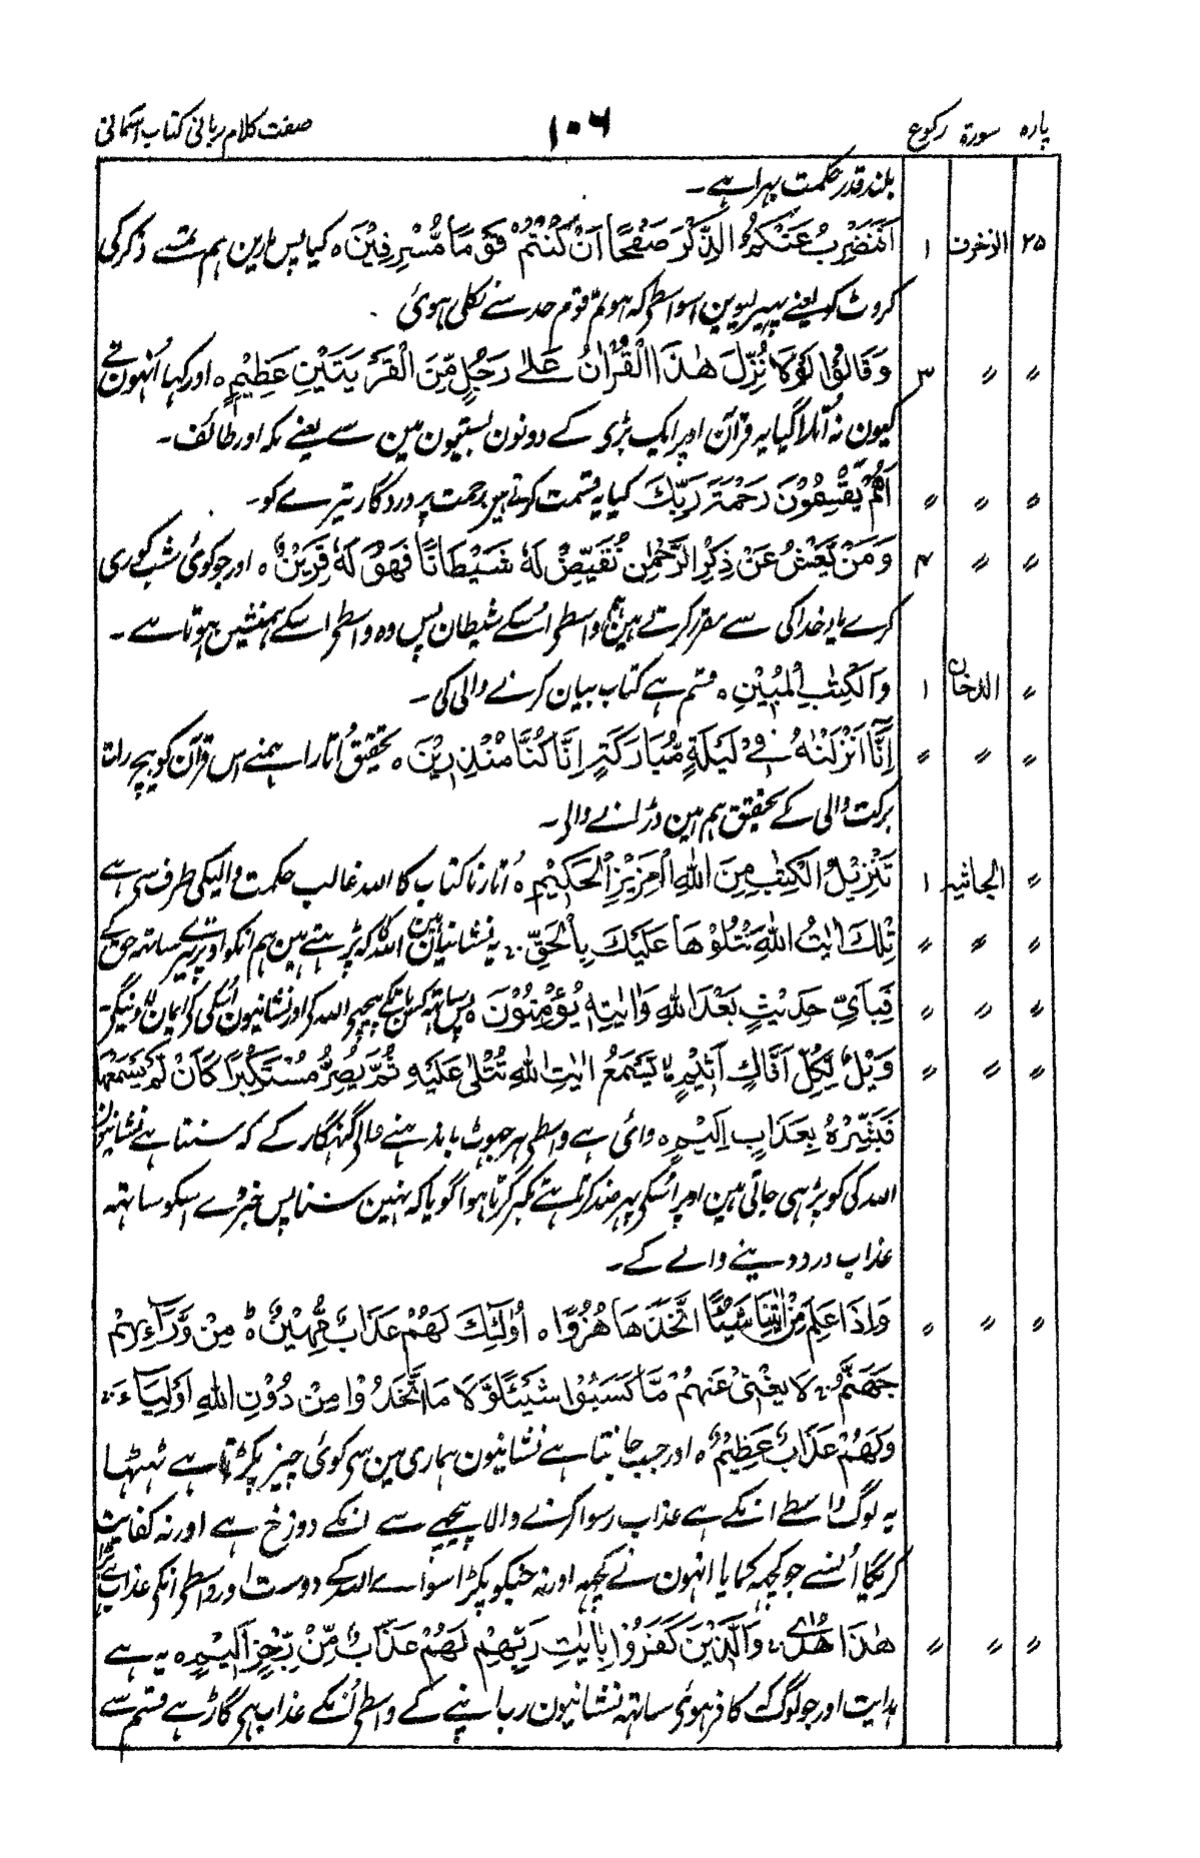 پارہ سورۃ رکوع ۱۰۶ صفت کلام ربانی کتاب آسمانی
بلند قدر حکمت بہرا ہے۔
۲۵ الزخرف ۱ اَفَنَضْرِبُ عَنْكُمُ الذِّكْرَ صَفْحًا اَنْ كُنْتُمْ قَوْمًا مُّسْرِفِيْنَ ہ کیا پس مارین ہم تمسے ذکر کی
کروٹ کو یعنے پہیر لیوین اسواسطی کہ ہو تم قوم حد سے نکلی ہوئی ۔
〃 〃 ۳ وَقَالُوْا لَوْلَا نُزِّلَ هٰذَا الْقُرْاٰنُ عَلٰے رَجُلٍ مِّنَ الْقَرْيَتَيْنِ عَظِيْمٍ ہ اور کہا اُنہون نے
کیون نہ اُتارا گیا یہ قرآن اوپر ایک بڑی کے دونون بستیون مین سے یعنے مکہ اور طائف۔
〃 〃 〃 اَهُمْ يَقْسِمُوْنَ رَحْمَةَ رَبِّكَ کیا یہ قسمت کرتے ہین رحمت پروردگار تیرے کو۔
〃 〃 ۴ وَمَنْ يَّعْشُ عَنْ ذِكْرِ الرَّحْمٰنِ نُقَيِّضْ لَهٗ شَيْطَانًا فَهُوَ لَهٗ قَرِيْنٌ ہ اور جو کوئی شب کوری
کرے یاد خدا کی سے مقرر کرتے ہین ہم واسطی اُسکے شیطان پس وہ واسطی اسکے ہمنشین ہوتا ہے۔
〃 الدخان ۱ وَالْكِتٰبِ الْمُبِيْنِ ہ قسم ہے کتاب بیان کرنے والی کی۔
〃 〃 〃 اِنَّا اَنْزَلْنٰهُ فِيْ لَيْلَةٍ مُّبَارَكَةٍ اِنَّا كُنَّا مُنْذِرِيْنَ ہ تحقیق اُتارا ہمنے اس قرآن کو بیچ رات
برکت والی کے تحقیق ہم ہین ڈرانے والی۔
〃 الجاثیہ ۱ تَنْزِيْلُ الْكِتٰبِ مِنَ اللّٰهِ الْعَزِيْزِ الْحَكِيْمِ ہ اُتارنا کتاب کا اللہ غالب حکمت والیکی طرف سی ہے
〃 〃 〃 تِلْكَ اٰيٰتُ اللّٰهِ نَتْلُوْهَا عَلَيْكَ بِالْحَقِّ ۔ یہ نشانیان ہین اللہ کی کہ پڑہتے ہین ہم انکو اوپر تیرے ساتہہ حق کے
〃 〃 〃 فَبِاَيِّ حَدِيْثٍ بَعْدَ اللّٰهِ وَاٰيٰتِهٖ يُؤْمِنُوْنَ ہ پس ساتہہ کس بات کے پیچہے اللہ کے اور نشانیون اُسکی کے ایمان لاوینگے
〃 〃 〃 وَيْلٌ لِّكُلِّ اَفَّاكٍ اَثِيْمٍ ۙ يَّسْمَعُ اٰيٰتِ اللّٰهِ تُتْلٰى عَلَيْهِ ثُمَّ يُصِرُّ مُسْتَكْبِرًا كَاَنْ لَّمْ يَسْمَعْهَا
فَبَشِّرْهُ بِعَذَابٍ اَلِيْمٍ ہ وائی ہے واسطی ہر جہوٹ باندہنے والی گنہگار کے کہ سنتا ہے نشانیون
اللہ کی کو پڑہی جاتی ہین اوپر اُسکی پہر ضد کرتا ہے تکبر کرتا ہوا گویا کہ نہین سنا پس خبر دے اسکو ساتہہ
عذاب درد دینے والے کے۔
〃 〃 〃 وَاِذَا عَلِمَ مِنْ اٰيٰتِنَا شَيْئًا اتَّخَذَهَا هُزُوًا ہ اُولٰٓئِكَ لَهُمْ عَذَابٌ مُّهِيْنٌ ہ مِنْ وَّرَآءِهِمْ
جَهَنَّمُ ۔ لَا يُغْنِيْ عَنْهُمْ مَّا كَسَبُوْا شَيْئًا وَّلَا مَا اتَّخَذُوْا مِنْ دُوْنِ اللّٰهِ اَوْلِيَآءَ ۔
وَلَهُمْ عَذَابٌ عَظِيْمٌ ہ اور جب جانتا ہے نشانیون ہماری مین سی کوئی چیز پکڑتا ہے ٹہٹہا
یہ لوگ واسطے انکے ہے عذاب رسوا کرنے والا پیچہے سے انکے دوزخ ہے اور نہ کفایت
کریگا اُنسے جو کچہہ کمایا انہون نے کچہہ اور نہ جنکو پکڑا سوائے اللہ کے دوست اور واسطی انکی عذاب ہے بڑا
〃 〃 〃 هٰذَا هُدًى ۔ وَالَّذِيْنَ كَفَرُوْا بِاٰيٰتِ رَبِّهِمْ لَهُمْ عَذَابٌ مِّنْ رِّجْزٍ اَلِيْمٍ ہ یہ ہے
ہدایت اور جو لوگ کہ کافر ہوئی ساتہہ نشانیون رب اپنے کے واسطی اُنکے عذاب ہی گاڑہے قسم سے